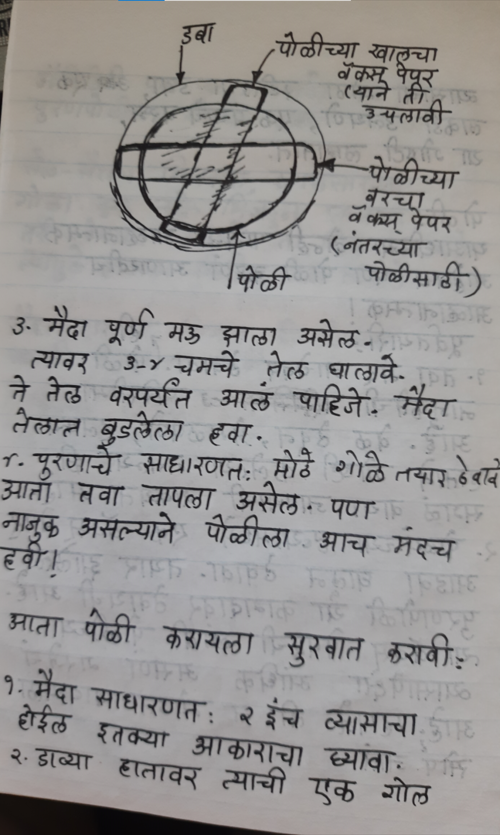 डबा
पोळीच्या खालचा
वॅक्स पेपर
(याने ती
उचलावी
पोळीच्या
वरचा
वॅक्स् पेपर
(नंतरच्या
पोळीसाठी)
पोळी
३. मैदा पूर्ण मऊ झाला असेल.
त्यावर ३-४ चमचे तेल घालावे.
ते तेल वरपर्यंत आलं पाहिजे. मैदा
तेलात बुडलेला हवा.
४. पुरणाचे साधारणत: मोठे गोळे तयार ठेवावे
आता तवा तापला असेल पण
नाजुक असल्याने पोळीला आच मंदच
हवी!
आता पोळी करायला सुरवात करावी:
१. मैदा साधारणत: २ इंच व्यासाचा
होईल इतक्या आकाराचा घ्यावा.
२. डाव्या हातावर त्याची एक गोल